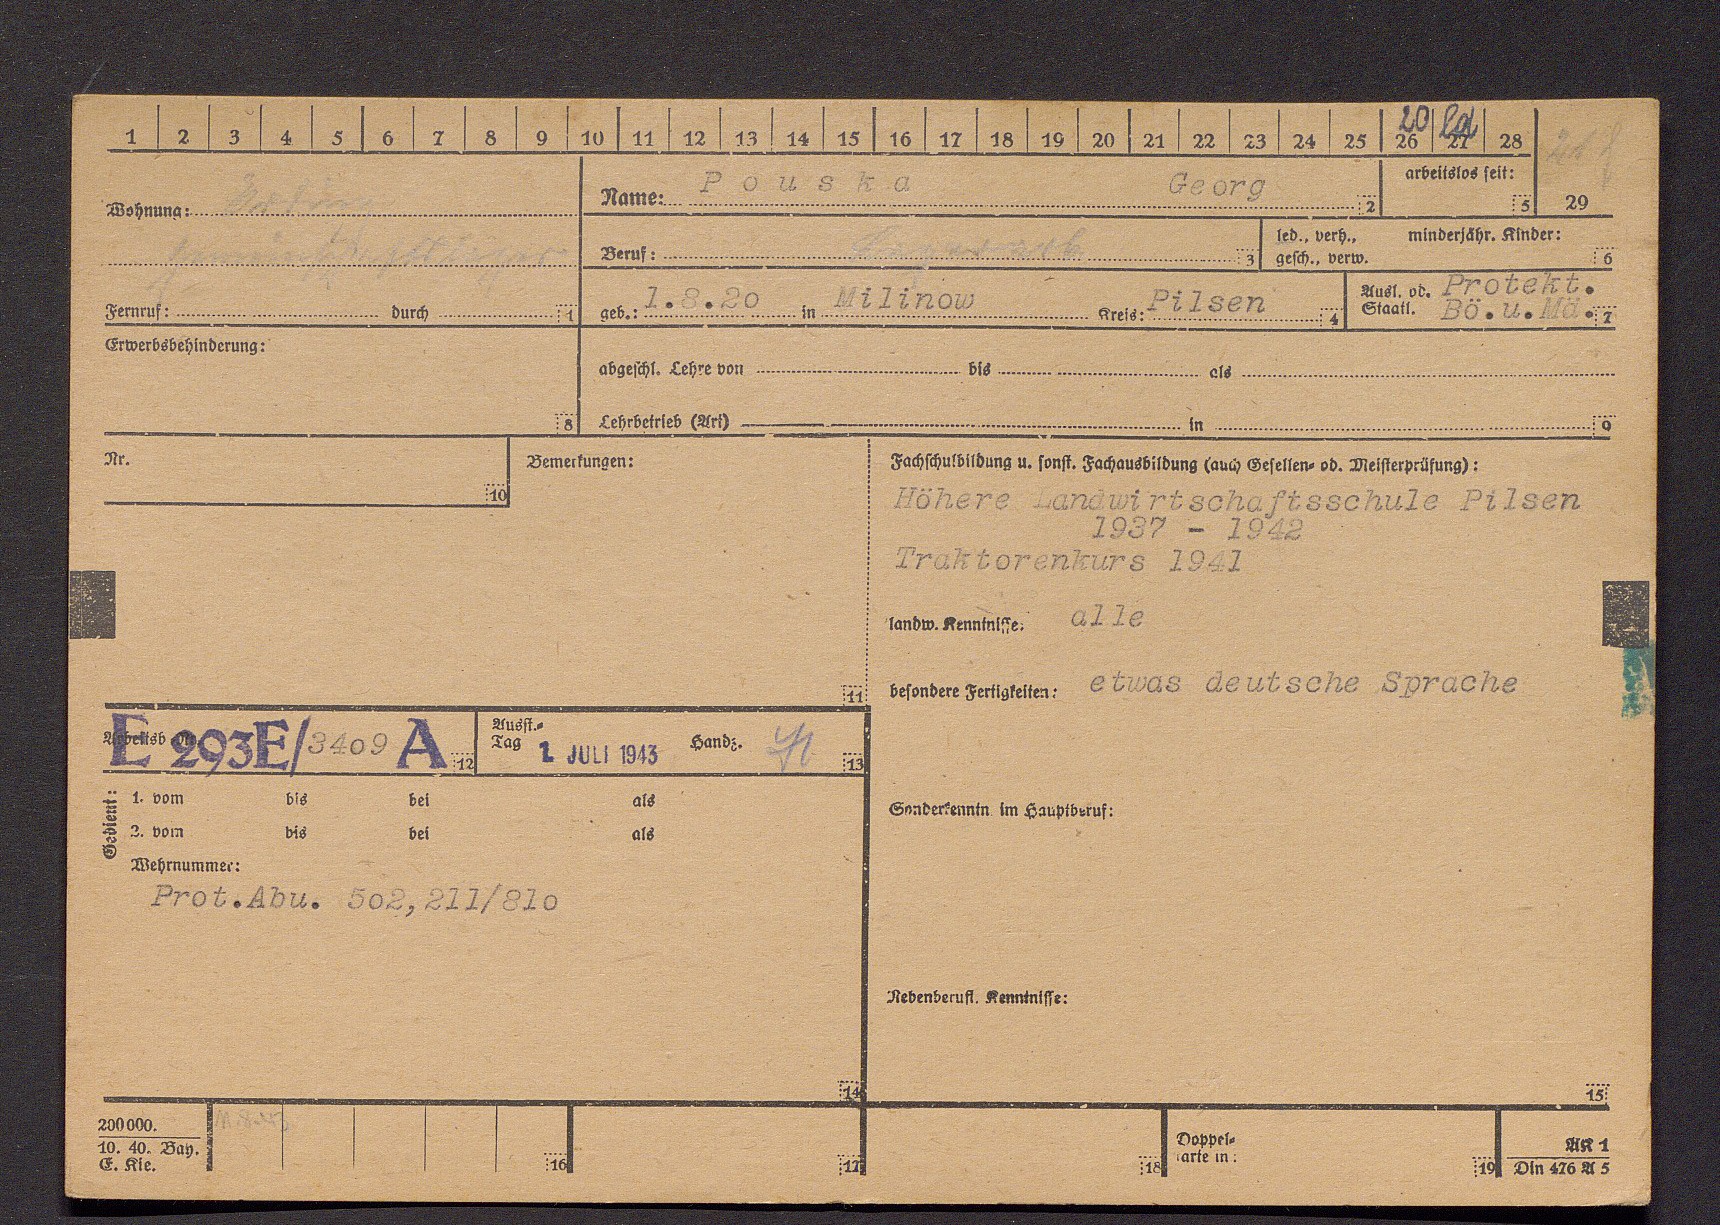 1 2 3 4 5 6 7 8 9 10 11 12 13 14 15 16 17 18 19 20 21 22 23 24 25 26 27 28
20
Wohnung:
Name: Pouska Georg 2
arbeitslos seit: 5
29
Beruf: 3
led., verh., minderjähr. Kinder:
gesch., verw. 6
Fernruf: durch 1
geb.: 1.8.20 in Milinow Kreis: Pilsen 4
Ausl. od. Protekt.
Staatl. Bö.u.Mä. 7
Erwerbsbehinderung: 8
abgeschl. Lehre von bis als
Lehrbetrieb (Art) in 9
Nr. 10
Bemerkungen: 11
Fachschulbildung u. sonst. Fachausbildung (auch Gesellen- od. Meisterprüfung):
Höhere Landwirtschaftsschule Pilsen
1937 - 1942
Traktorenkurs 1941
landw. Kenntnisse: alle
besondere Fertigkeiten: etwas deutsche Sprache
E 293E/3409 A 12
Ausst.-
Tag 1 JULI 1943 Handz. 13
Gedient:
1. vom bis bei als
2. vom bis bei als
Wehrnummer:
Prot.Abu. 502,211/810
14
Sonderkenntn. im Hauptberuf:
Nebenberufl. Kenntnisse:
15
200000.
10. 40. Bay.
E. Kie.
16
17
18
Doppel-
karte in: 19
AK 1
Din 476 A 5